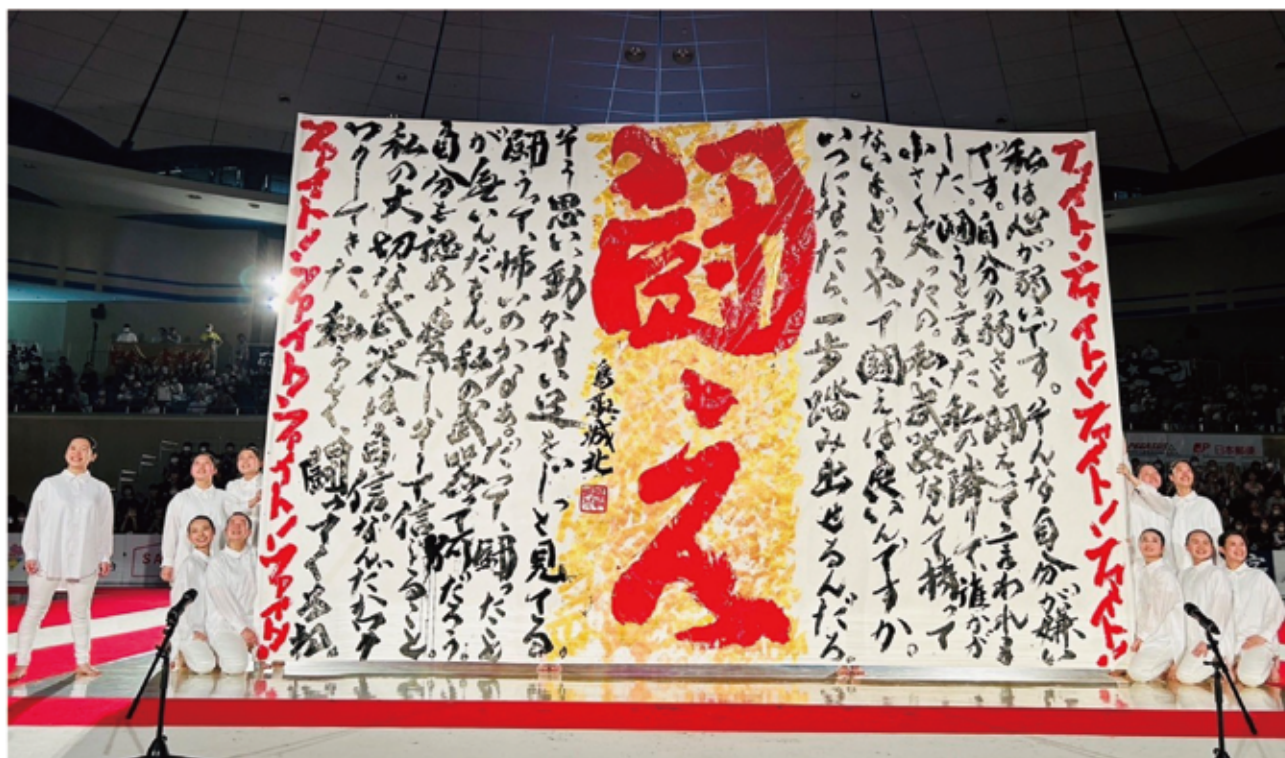 ファイト!ファイト!ファイト!ファイト!
私は心が弱いです。そんな自分が嫌い
です。自分の弱さと闘えって言われま
した。闘うと言った私の隣りで、誰かが
小さく笑ったの。私、武器なんて持って
ないよ。どうやって闘えば良いんですか。
いつになったら、一歩踏み出せるんだろ。
闘え
鳥取城北
そう思い、動かない足をじっと見てる。
闘うって、怖いのかなぁ。だって、闘ったこと
が無いんだもん。私の武器って何だろう。
自分を認め、愛し、そして信じること。
私の大切な武器は、自信。なんだかワク
ワクしてきた。私らしく、闘ってくるね。
ファイト!ファイト!ファイト!ファイト!
日本郵便